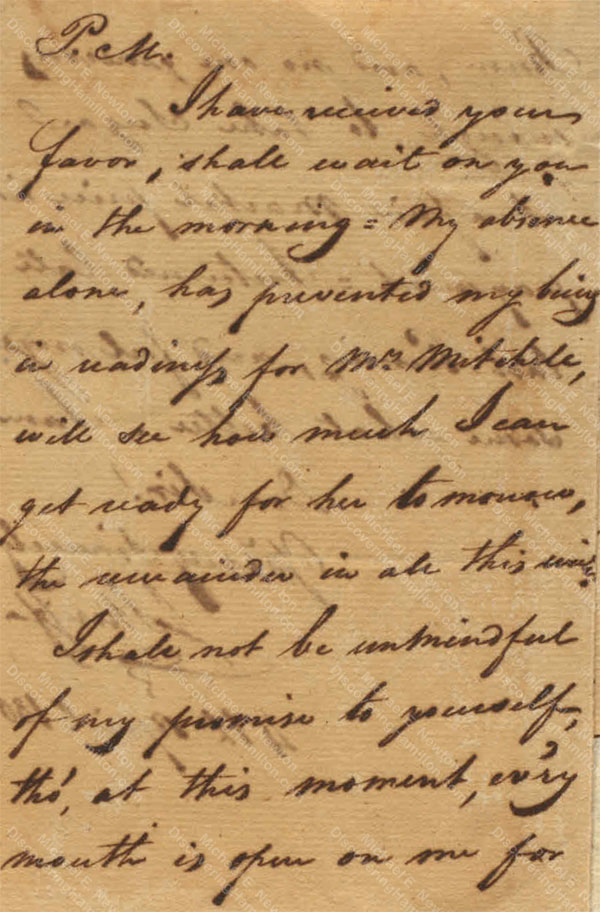 P. M.
I have received your
favor, shall wait on you
in the morning = My absence
alone, has prevented my being
in readiness for Mrs Mitchell,
will see how much I can
get ready for her tomorrow,
the remainder in all this
I shall not be unmindful
of my promise to yourself,
tho', at this moment, ev'ry
mouth is open on me for